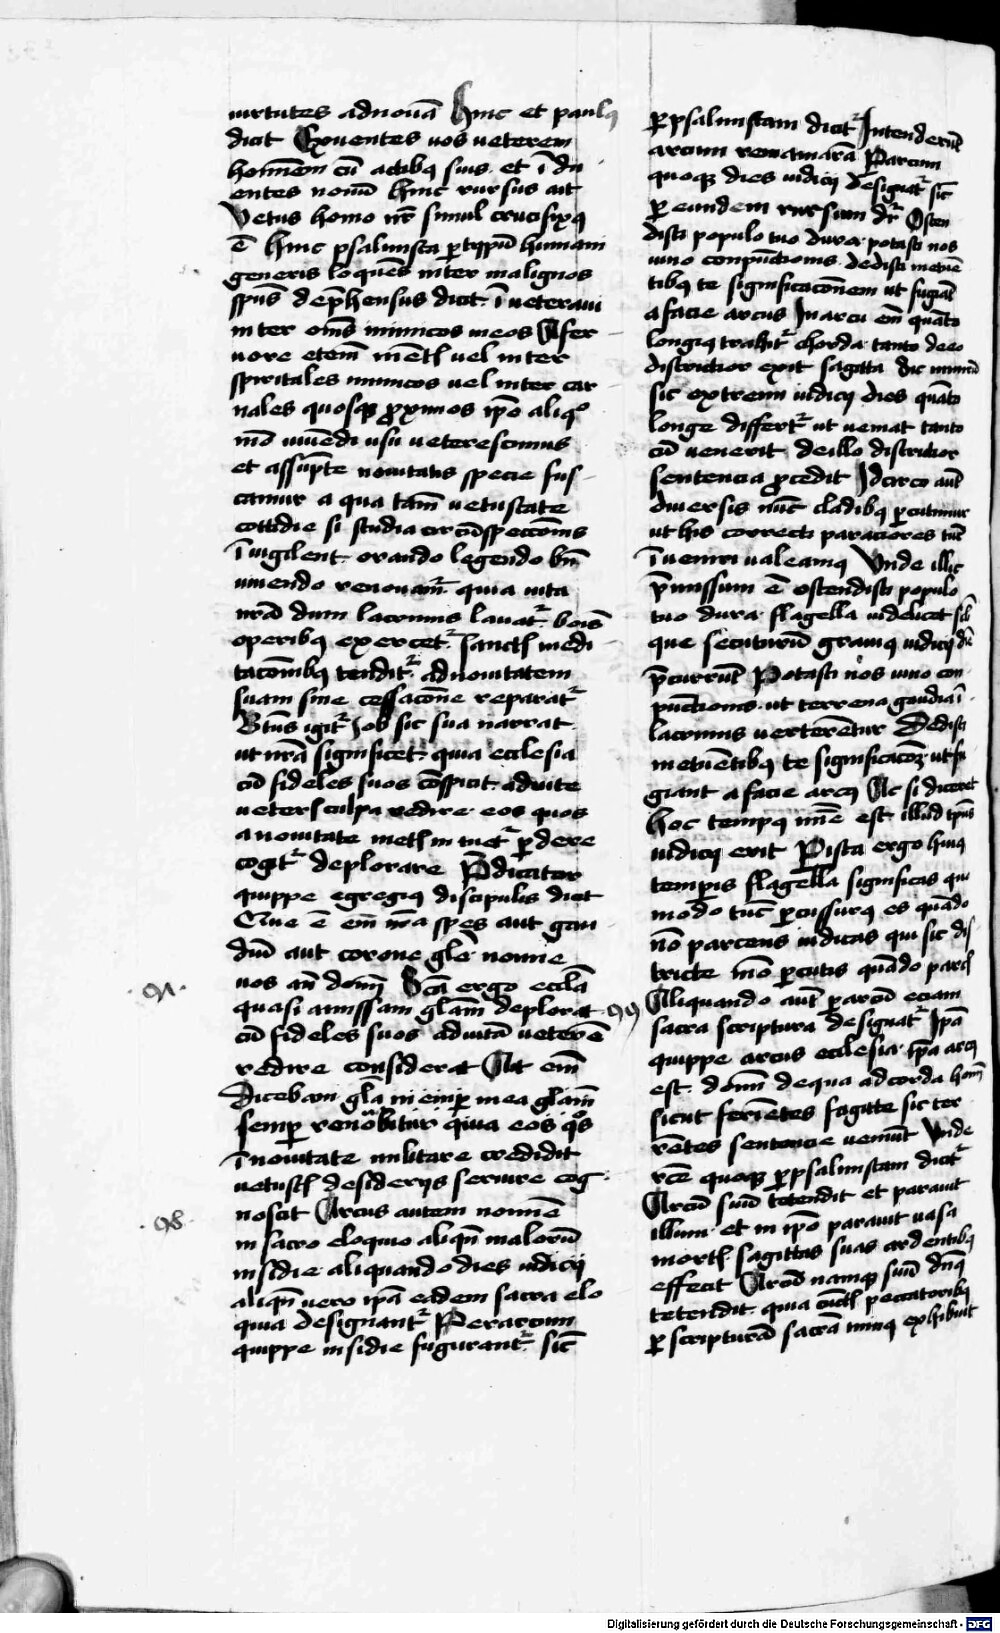 uirtutes ad nouā Hinc et paulꝯ
dicit Exuentes uos ueterem
hominem cū actibꝰ suis et īdu
entes nouū hinc rursus ait
Vetus homo nr̄ simul crucifixꝰ
ē hinc psalmista ꝑ typū humani
generis loquēs inter malignos
spūs dep̄hensus dicit īueteraui
inter oms̄ inimicos meos A fer
uore etem̄ mentis uel inter
spiritales inimicos uel inter car
nales quosqꝫ ꝓximos ip̄o aliqͦ
mō uiuēdi usu ueterescimus
et assūpte nouitatis specie fus
camur a qua tam̄ uetustate
cottidie si studia circūspecc̄onis
īuigilent orando legendo bn̄
uiuendo renouam̄ quia uita
nrā dum lacrimis lauat᷑ bonis
operibꝰ exercet᷑ sanctis medi
tac̄onibꝰ tendit᷑ ad nouitatem
suam sine cessac̄one reparat᷑
Bt̄us igit᷑ Job sic sua narrat
ut nrā significet quia ecclesia
cū fideles suos cōspicit ad uite
ueteris culpa redire eos quos
a nouitate mentis in uet᷑ ꝑdere
cogit᷑ deplorare P̄dicator
quippe egregiꝰ discipulis dicit
Que ē em̄ nr̄a spes aut gau
diū aut corone glē nonne
uos an̄ dom̄ Scā ergo ecclā
.97. quasi amissam glām deplorat
cū fideles suos ad uitā ueterē
redire considerat Ait em̄
Dicebam glā mea semꝑ
semꝑ renouabitur quia eos qͦs
ī nouitate militare credidit
uetustis desiderijs seruire cog
noscit Arcus autem nomine
.98. in sacro eloquio aliqn̄ malorū
insidie aliquando dies iudicij
aliqn̄ uero ip̄a eadem sacra elo
quia designant᷑ Per arcum
quippe insidie figurant᷑ sic̄
ꝑ psalmistam dicit᷑ Intenderūt
arcum rem amarā Per arcum
quoqꝫ dies iudicij designat᷑ sic̄
ꝑ eundem rursum dr̄ Osten
disti populo tuo dura potasti nos
uino conpūctionis dedisti metuē
tibꝰ te significac̄onem ut fugiāt
a facie arcus In arcu em̄ quāto
longiꝰ trahit᷑ chorda tanto de eo
districtior exit sagitta sic nimirū
sic extremi iudicij dies quāto
longe differt᷑ ut ueniat tanto
cū uenerit de illo districtior
sentencia ꝓcedit Idcirco aut̄
diuersis nūc cladibꝰ ꝑcutimur
ut his correcti paraciores tūc
īueniri ualeamꝰ Vnde illic
p̄missum ē ostendisti populo
tuo dura flagella uidelicet
que secuturū grauiꝰ iudiciū dei
p̄currūt Potasti nos uino con
pūctionis ut terrena gaudia ī
lacrimis uerterētur Dedisti
metuētibꝰ te significac̄oꝫ ut fu
giant a facie arcꝰ Ac si diceret
hoc tempꝰ mīe est illud tp̄us
iudicij erit Per ista ergo huiꝰ
tempis flagella significas quo
modo tūc ꝑcussurꝰ es quādo
nō parcens iudicas qui sic dis
tricte mō ꝑcutis quādo parcis
99 Aliquando aut̄ ꝑ arcū eciam
sacra scriptura designat᷑ Ip̄a
quippe arcus ecclesia ip̄a arcꝰ
est dom̄ de qua ad corda homī
sicut feriētes sagitte sic ter
rētes sentencie ueniūt Vnde
rc̄e quoqꝫ ꝑ psalmistam dicit᷑
Arcū suū tetendit et parauit
illum et in ip̄o parauit uasa
mortis sagittas suas ardentibꝰ
effecit Arcū namqꝫ suū dn̄s
tetendit quia cūctis peccatoribꝰ
ꝑ scripturā sacrā minas exhibuit
Digitalisierung gefördert durch die Deutsche Forschungsgemeinschaft - DFG